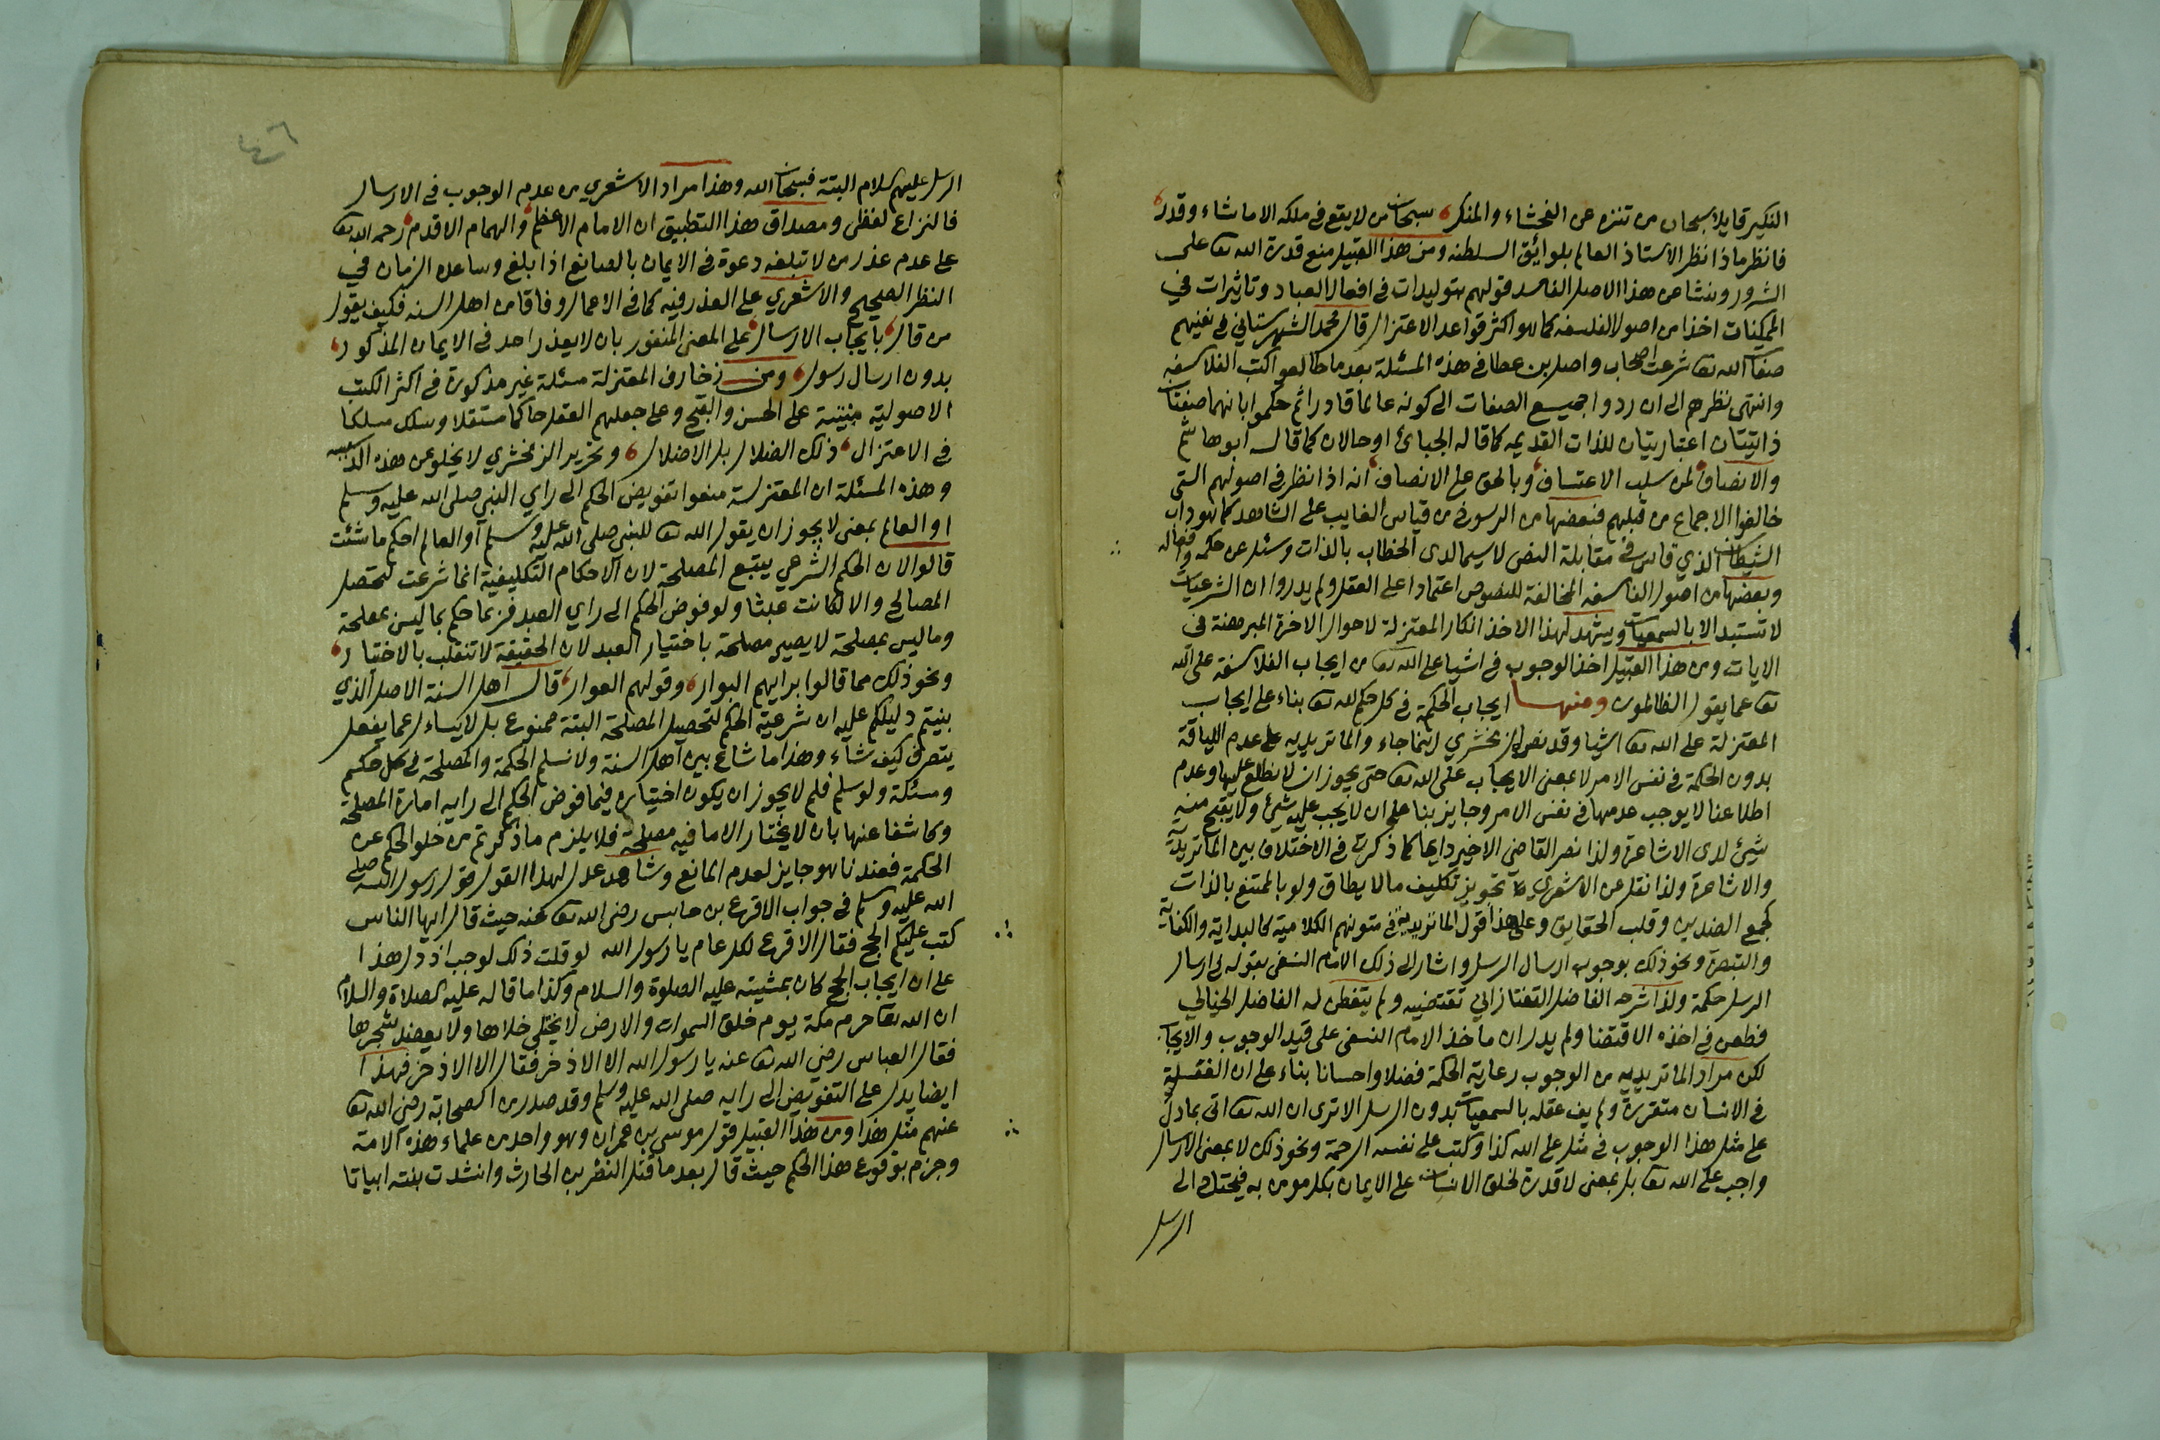 النكير قايلا سبحان من تنزه عن الفحشاء والمنكر، سبحان من لا يقع في ملكه الا ما شاء وقدر،
فانظر ماذا نظر الاستاذ العالم بلوائق السلطنه ومن هذا القبيل منع قدرة الله تعا على
الشرور ومنشا من هذا الاصل الفاسد قولهم بتوليدات في افعال العباد وتاثيرات في
الممكنات اخذا من اصول الفلسفه كما هو اكثر قواعد الاعتزال قال محمد الشهرستاني في نفيهم
صفات الله تعا شرعت اصحاب واصل بن عطا في هذه المسئلة بعد ما طالعوا كتب الفلاسفه
وانتهى نظرهم الى ان ردوا جميع الصفات الى كونه عالما قادرا ثم حكموا بانهما صفتان
ذاتيتان اعتباريتان للذات القديمه كما قاله الجبائ او حالان كما قال ابو هاشم
والانصاف لمن سلب الاعتساف، وبالحق على الانصاف، انه اذا نظر في اصولهم التى
خالفوا الاجماع من قبلهم فبعضها من الرسوخ من قياس الغايب على الشاهد كما هو داب
الشيطان الذي قاس في مقابلة النص لا سيما لدى الخطاب بالذات وسئل عن حكمه وافعاله
وبعضها من اصول الفلاسفه المخالفة للنصوص اعتمادا على العقل ولم يدروا ان الشرعيات
لا تستبد الا بالسمعيات ويشهد لهذا الاخذ انكار المعتزلة لاحوال الاخرة المبرهنة في
الايات ومن هذا القبيل اخذ الوجوب في اشيا على الله تعا من ايجاب الفلاسفة على الله
تعا عما يقول الظالمون ومنها ايجاب الحكمة في كل حكم لله تعا بناء على ايجاب
المعتزلة على الله تعا اشيا وقد نص الزمخشري اينما جاء والماتريديه على عدم اللياقة
بدون الحكمة في نفس الامر لا بمعنى الايجاب على الله تعا حتى يجوز ان لا نطلع عليها وعدم
اطلاعنا لا يوجب عدمها في نفس الامر وجايز بنا على ان لا يجب عليه شئ ولا يقبح منه
شئ لدى الاشاعرة ولذا نص القاضى الاخير دايما كما ذكرت في الاختلاف بين الماتريدية
والاشاعرة ولذا نقل عن الاشعري تجويز تكليف ما لا يطاق ولو بالممتنع بالذات
كجمع الضدين وقلب الحقايق وعلى هذا قول الماتريدية في متونهم الكلامية كالبداية والكفاية
والتبصرة ونحو ذلك بوجوب ارسال الرسل واشار الى ذلك الامام النسفى بقوله في ارسال
الرسل حكمة ولذا شرحه الفاضل التفتازاني تقتضيه ولم يتفطن له الفاضل الخيالي
فطعن في اخذه الاقتضا ولم يدر ان ماخذ الامام النسفى على قيد الوجوب والايجاب
لكن مراد الماتريديه من الوجوب رعاية الحكمة فضلا واحسانا بناء على ان الغفلة
في الانسان متقررة ولم يف عقله بالسمعيات بدون الرسل الا ترى ان الله تعا اتى بما دل
على مثل هذا الوجوب في مثل على الله كذا وكتب على نفسه الرحمة ونحو ذلك لا بمعنى الارسال
واجب على الله تعا بل بمعنى لا قدرة لخلق الانسان على الايمان بكل مومن به فيحتاج الى
الرسل
٤٦
الرسل عليهم السلام البتة فسبحان الله وهذا مراد الاشعري من عدم الوجوب في الارسال
فالنزاع لفظى ومصداق هذا التطبيق ان الامام الاعظم، والهمام الاقدم، رحمه الله تعا
على عدم عذر من لا تبلغه دعوة في الايمان بالصانع اذا بلغ وساعده الزمان في
النظر الصحيح والاشعري على العذر فيه كما في الاعمال وفاقا من اهل السنه فكيف يقول
من قال بايجاب الارسال، على المعنى المنفور بان لا يعذر احد في الايمان المذكور،
بدون ارسال رسول، ومن زخارف المعتزلة مسئلة غير مذكورة في اكثر الكتب
الاصولية مبنية على الحسن والقبح وعلى جعلهم العقل حاكما مستقلا وسلك مسلكا
في الاعتزال، ذلك الضلال بل الاضلال، وتحرير الزمخشري لا يخلو عن هذه الدسيسه
وهذه المسئلة ان المعتزلة منعوا تفويض الحكم الى راي النبي صلى الله عليه وسلم
او العالم بمعنى لا يجوز ان يقول الله تعا للنبى صلى الله عليه وسلم او العالم احكم ما شئت
قالوا لان الحكم الشرعي يتبع المصلحة لان الاحكام التكليفية انما شرعت لتحصل
المصالح والا لكانت عبثا ولو فوض الحكم الى راي العبد فربما حكم بما ليس بمصلحة
وما ليس بمصلحة لا يصير مصلحة باختيار العبد لان الحقيقة لا تنقلب بالاختيار،
ونحو ذلك مما قالوا برايهم البوار، وقولهم العوار، قال اهل السنة الاصل الذي
بنيتم دليلكم عليه ان شرعية الحكم لتحصيل المصلحة البتة ممنوع بل لا يسال عما يفعل
يتصرف كيف شاء وهذا ما شاع بين اهل السنة ولا نسلم الحكمة والمصلحة في كل حكم
ومسئلة ولو سلم فلم لا يجوز ان يكون اختياره فيما فوض الحكم الى رايه امارة المصلحة
وكاشفا عنها بان لا يختار الا ما فيه مصلحة فلا يلزم ما ذكرتم من خلو الحكم عن
الحكمة فعندنا هو جايز لعدم المانع وشاهد عدل لهذا القول قول رسول الله صلى
الله عليه وسلم في جواب الاقرع بن حابس رضى الله تعا عنه حيث قال ايها الناس
كتب عليكم الحج فقال الاقرع لكل عام يا رسول الله لو قلت ذلك لوجب اذ دل هذا
على ان ايجاب الحج كان بمشيته عليه الصلوة والسلام وكذا ما قاله عليه الصلاة والسلام
ان الله تعا حرم مكة يوم خلق السموات والارض لا يختلى خلاها ولا يعضد شجرها
فقال العباس رضي الله تعا عنه يا رسول الله الا الاذخر فقال الا الاذخر فهذا
ايضا يدل على التفويض الى رايه صلى الله عليه وسلم وقد صدر من الصحابة رضي الله تعا
عنهم مثل هذا ومن هذا القبيل قول موسى بن عمران وهو واحد من علماء هذه الامة
وجزم بوقوع هذا الحكم حيث قال بعد ما قتل النظر بن الحارث وانشدت بنته ابياتا